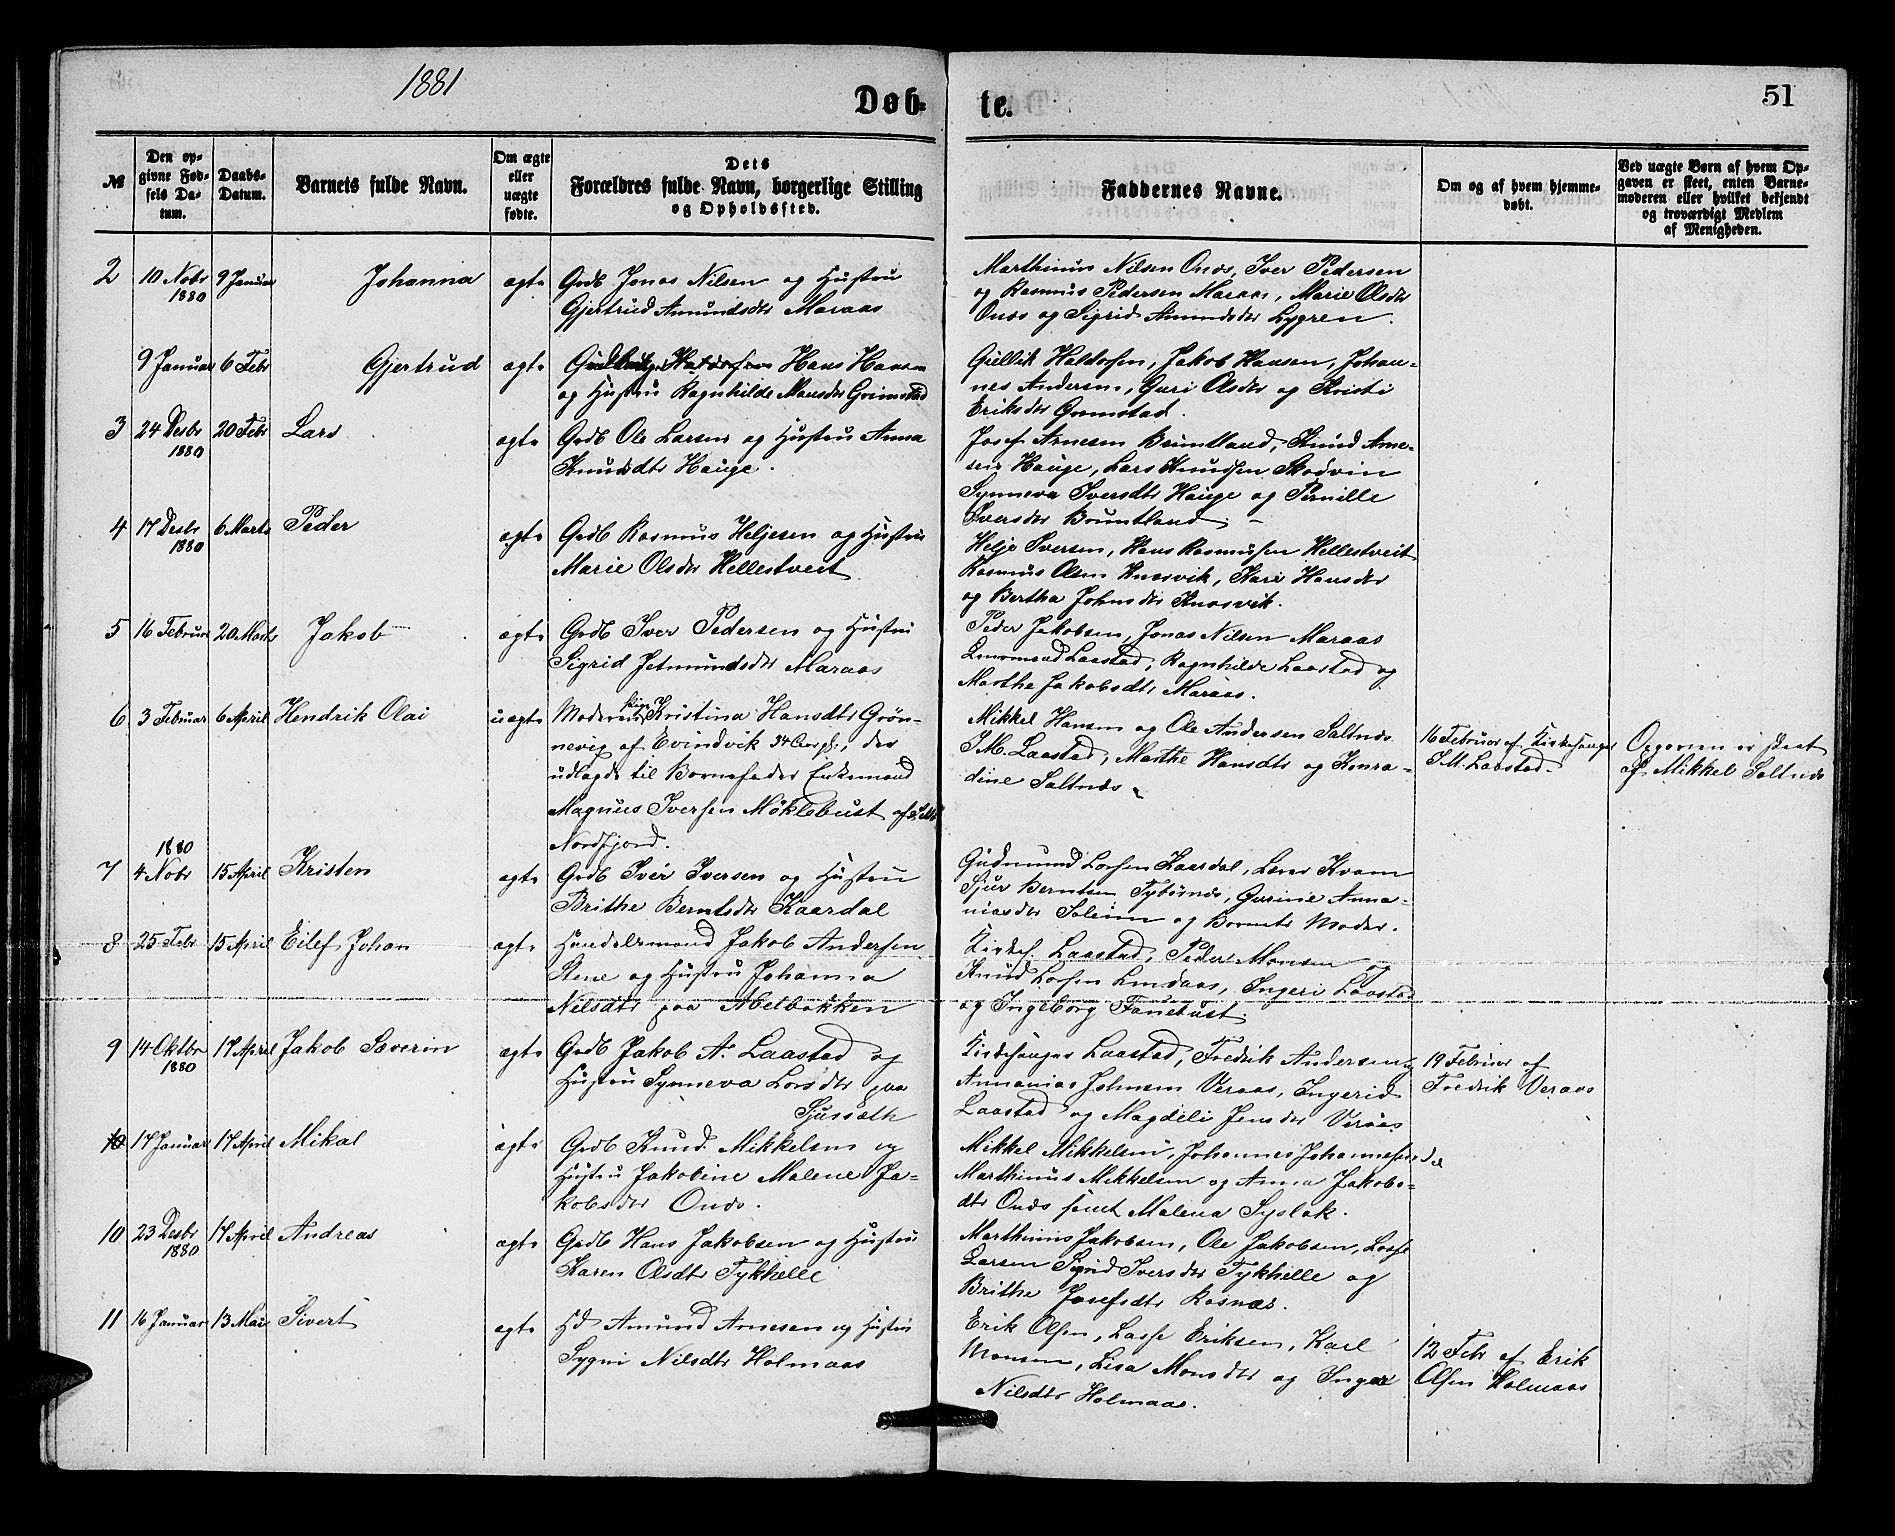 1881
Døb-
te.
51
№
Den op-
givne Fød-
sels Da-
tum.
Daabs-
Datum.
Barnets fulde Navn.
Om ægte
eller
uægte
fødte.
Dets
Forældres fulde Navn, borgerlige Stilling
og Opholdssted.
Faddernes Navne.
Om og af hvem hjemme-
døbt.
Ved uægte Børn af hvem Op-
gaven er skeet, enten Barne-
moderen eller hvilket bekjendt
og troværdigt Medlem
af Menigheden.
2
10 Nobr
1880
9 Januar
Johanna
ægte
Grdb Jonas Nilsen og Hustru
Gjertrud Amundsdtr Maraas
Marthinus Nilsen Onæs, Iver Pedersen
og Rasmus Pedersen Maraas, Marie Olsdtr
Onæs og Sigrid Amundsdtr Lygren.
9 Januar
6 Febr
Gjertrud
ægte
Hans Hansen
og Hustru Ragnhilde Monsdtr Grimstad
Gullik Haldorsen, Jakob Hansen, Johan-
nes Andersen, Guri Olsdtr og Kristi
Eriksdtr Grimstad.
3
24 Desbr
1880
20 Febr
Lars
ægte
Grdb Ole Larsen og Hustru Anna
Knudsdtr Hauge.
Josef Arnesen Bruntland, Knud Arne-
sen Hauge, Lars Knudsen Skodvin
Synneva Iversdtr Hauge og Pernille
Iversdtr Bruntland.
4
17 Desbr
1880
6 Marts
Peder
ægte
Grdb Rasmus Heljesen og Hustru
Marie Olsdtr Hellestveit
Helje Iversen, Hans Rasmussen Hellestveit
Rasmus Olsen Knarvik, Kari Hansdtr
og Bertha Johnsdtr Knarvik.
5
16 Februar
20 Marts
Jakob
ægte
Grdb Iver Pedersen og Hustru
Sigrid Jetmundsdtr Maraas
Peder Jakobsen, Jonas Nilsen Maraas
Laastad, Ragnhilde Laastad og
Marthe Jakobsdtr Maraas.
6
3 Februar
6 April
Hendrik Olai
uægte
Moderen Pige Kristina Hansdtr Grön-
nevig af Evindvik 34 Aar gl., der
udlagde til Barnefader Enkemand
Magnus Iversen Möklebust af
Nordfjord.
Mikkel Hansen og Ole Andersen Saltnæs
I.M. Laastad, Marthe Hansdtr og Konra-
dine Saltnæs
16 Februar af Kirkesanger
I.M. Laastad.
Opgaven er skeet
af Mikkel Saltnæs
7
1880
4 Nobr
15 April
Kristen
ægte
Grdb Iver Iversen og Hustru
Brithe Berntsdtr Kaardal
Gudmund Larsen Kaardal, Lars Kvam
Sjur Berntsen Tyborsnes, Gurine Anna-
niasdtr Soleim og Barnets Moder.
8
25 Febr
15 April
Eilef Johan
ægte
Handelsmand Jakob Andersen
Stene og Hustru Johanna
Nilsdtr paa Abelbakken
Kirkes. Laastad, Peder Monsen
Knud Larsen Lindaas, Ingeri Laastad
og Ingeborg Fanebust.
9
14 Oktbr
1880
17 April
Jakob Severin
ægte
Grdb Jakob A. Laastad og
Hustru Synneva Larsdtr paa
Sjursæth
Kirkesanger Laastad, Fredrik Andersen,
Annanias Johnsen Veraas, Ingerid
Laastad og Magdeli Jensdtr Veraas
19 Februar af
Fredrik Veraas
10
17 Januar
17 April
Mikal
ægte
Grdb Knud Mikkelsen og
Hustru Jakobine Malene Ja-
kobsdtr Onæs.
Mikkel Mikkelsen, Johannes Johannesen
Marthinus Mikkelsen og Anna Jakobs-
dtr Onæs samt Malena Syslak.
10
23 Desbr
1880
17 April
Andreas
ægte
Grdb Hans Jakobsen og Hustru
Karen Olsdtr Tykhelle
Marthinus Jakobsen, Ole Jakobsen, Lasse
Larsen Sigrid Iversdtr Tykhelle og
Brithe Josefsdtr Rosnæs.
11
16 Januar
13 Mai
Sivert
ægte
Hd Amund Arnesen og Hustru
Sygni Nilsdtr Holmaas
Erik Olsen, Lasse Eriksen, Karl
Monsen, Lisa Monsdtr og Inger
Nilsdtr Holmaas.
12 Febr af Erik
Olsen Holmaas